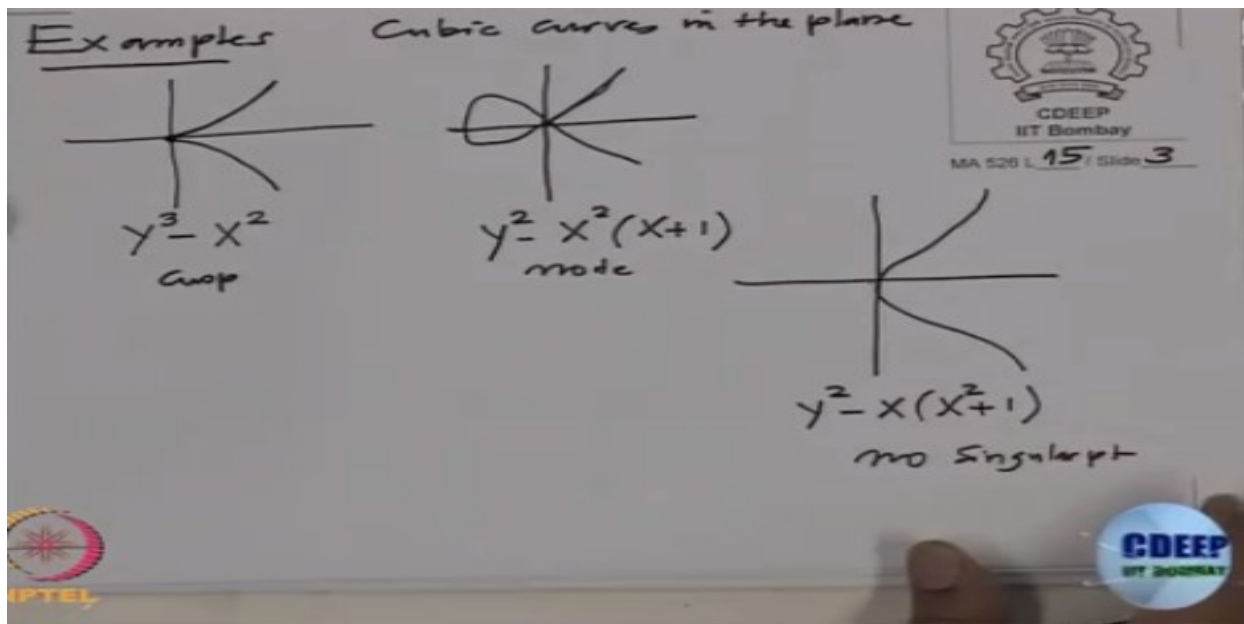 Examples Cubic curves in the plane
CDEEP
IIT Bombay
MA 526 L 15 / Slide 3
y³ - x²
cusp
y² - x²(x+1)
node
y² - x(x²+1)
no singular pt
CDEEP
IIT BOMBAY
NPTEL